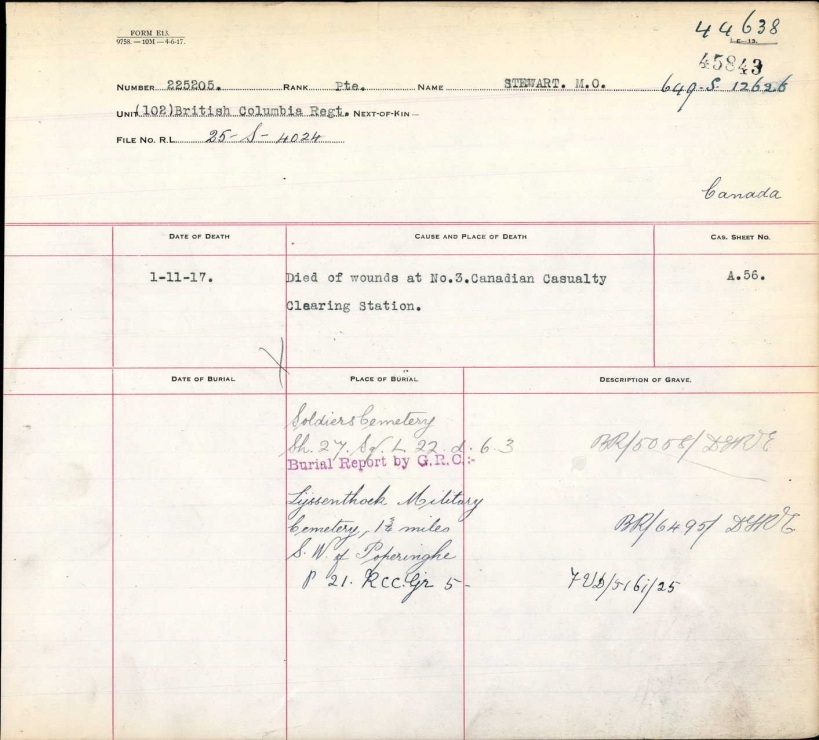 FORM E13.
9758. — 10M — 4-6-17.
44638
E—13.
45843
NUMBER 225205. RANK Pte. NAME STEWART. M.O. 649-S-12626
UNIT (102)British Columbia Regt. NEXT-OF-KIN —
FILE NO. R.L. 25-S-4024
Canada
DATE OF DEATH CAUSE AND PLACE OF DEATH CAS. SHEET NO.
1-11-17. Died of wounds at No.3.Canadian Casualty A.56.
Clearing Station.
DATE OF BURIAL PLACE OF BURIAL DESCRIPTION OF GRAVE.
Soldiers Cemetery
Sh. 27. Sq. L 22. d. 6.3
Burial Report by G.R.C.:-
Lijssenthoek Military
Cemetery, 1¾ miles BR/6495/
S.W. of Poperinghe
P 21. R CC. Gr 5-